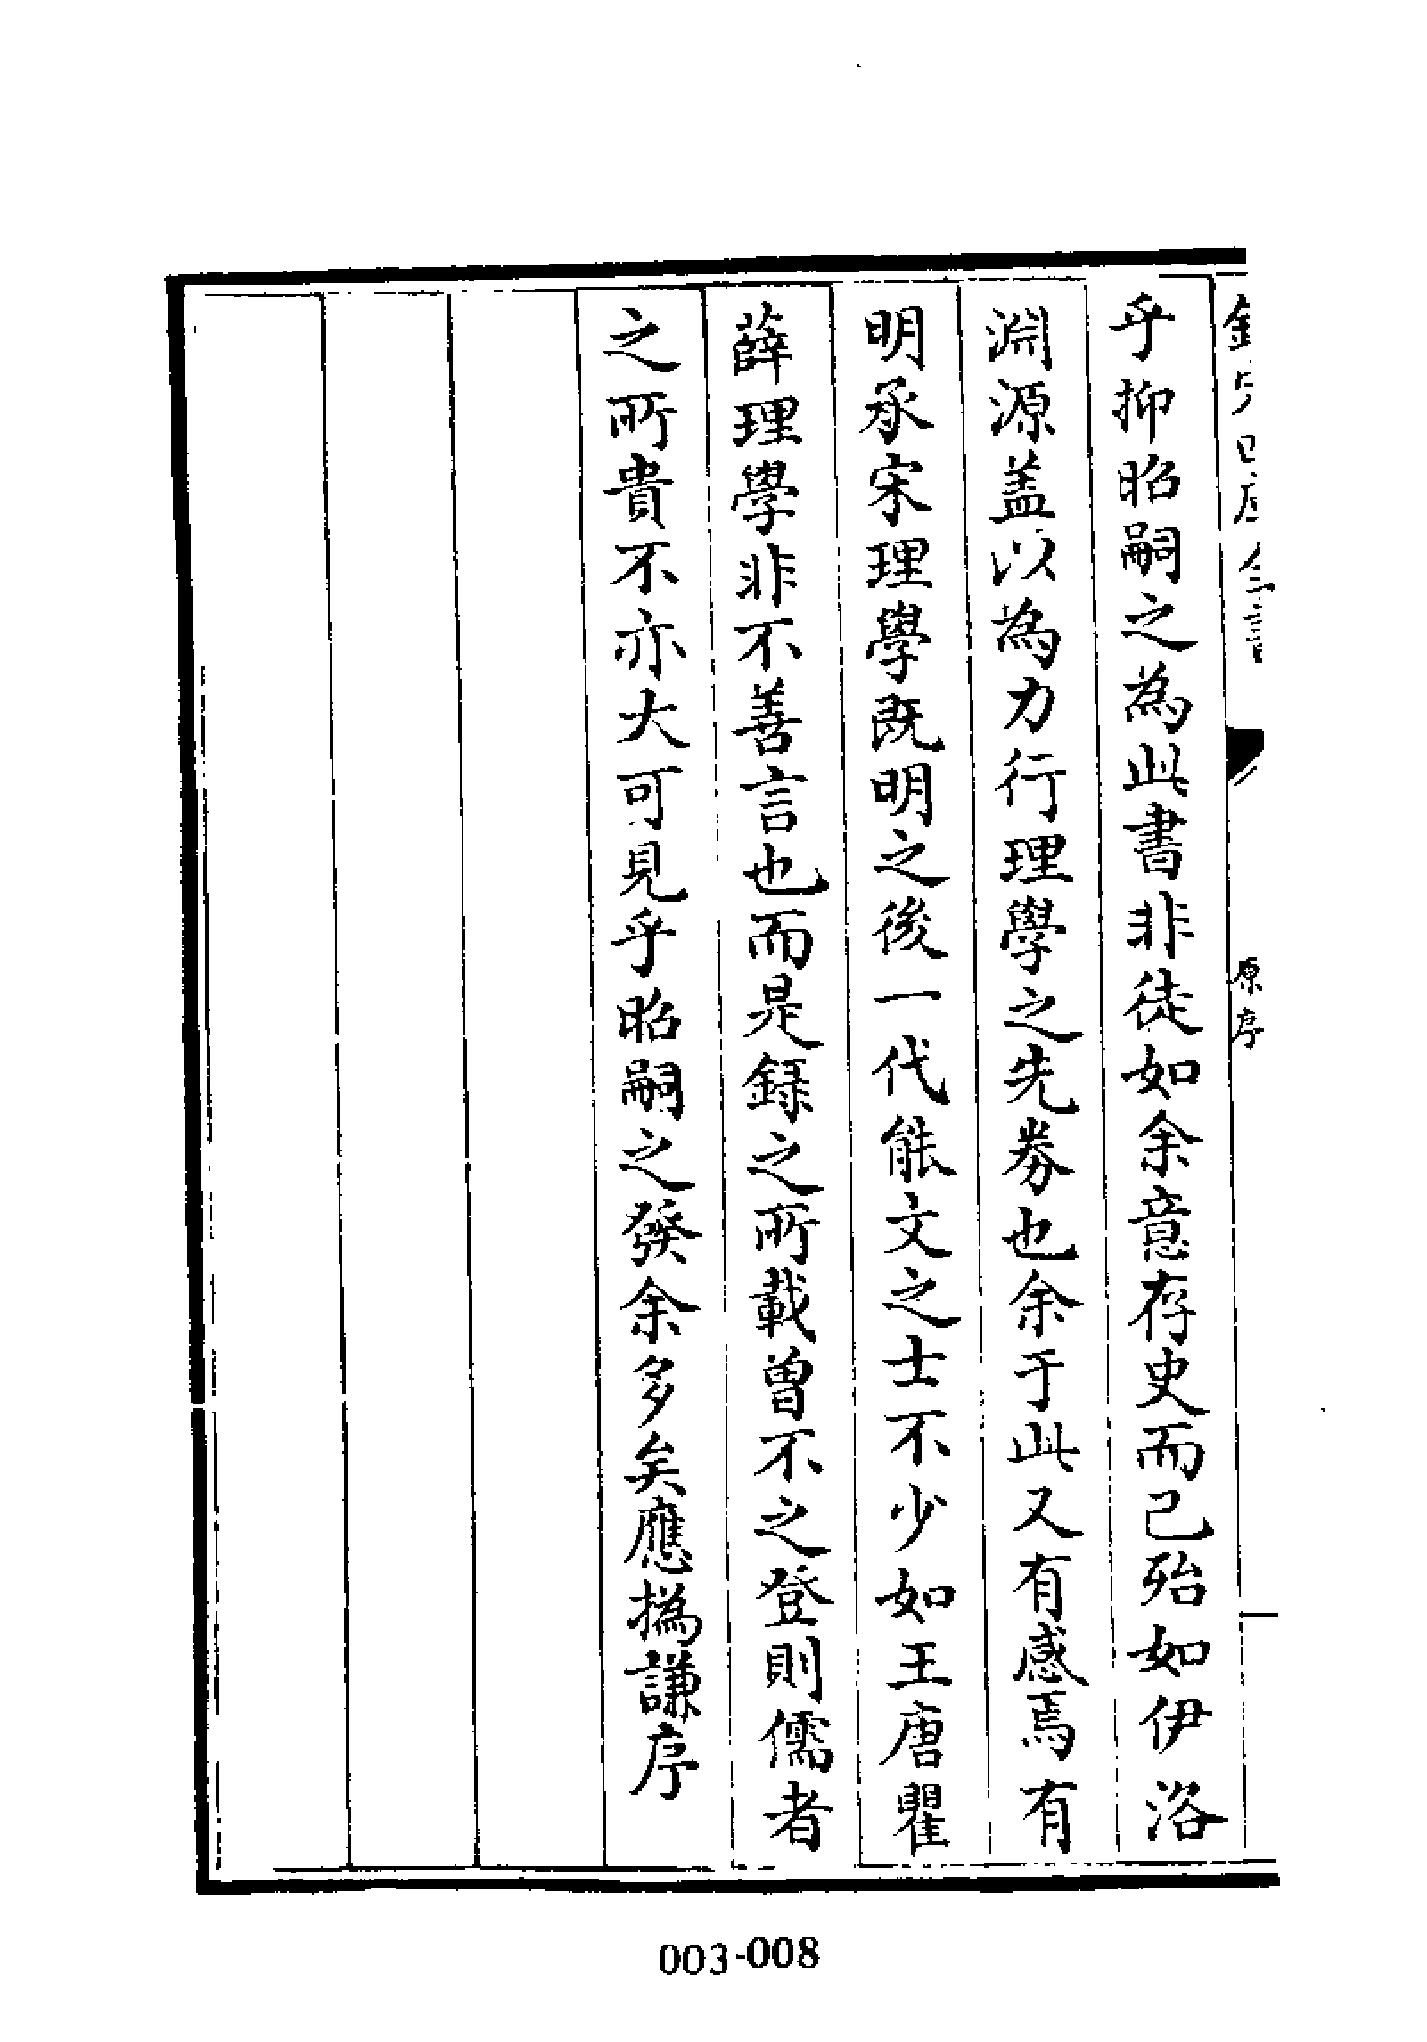 欽定四庫全書
原序
乎抑昭嗣之為此書非徒如余意存史而己殆如伊洛
淵源盖以為力行理學之先劵也余于此又有感焉有
明承宋理學既明之後一代能文之士不少如王唐瞿
薛理學非不善言也而是錄之所載曾不之登則儒者
之所貴不亦大可見乎昭嗣之發余多矣應撝謙序
003-008